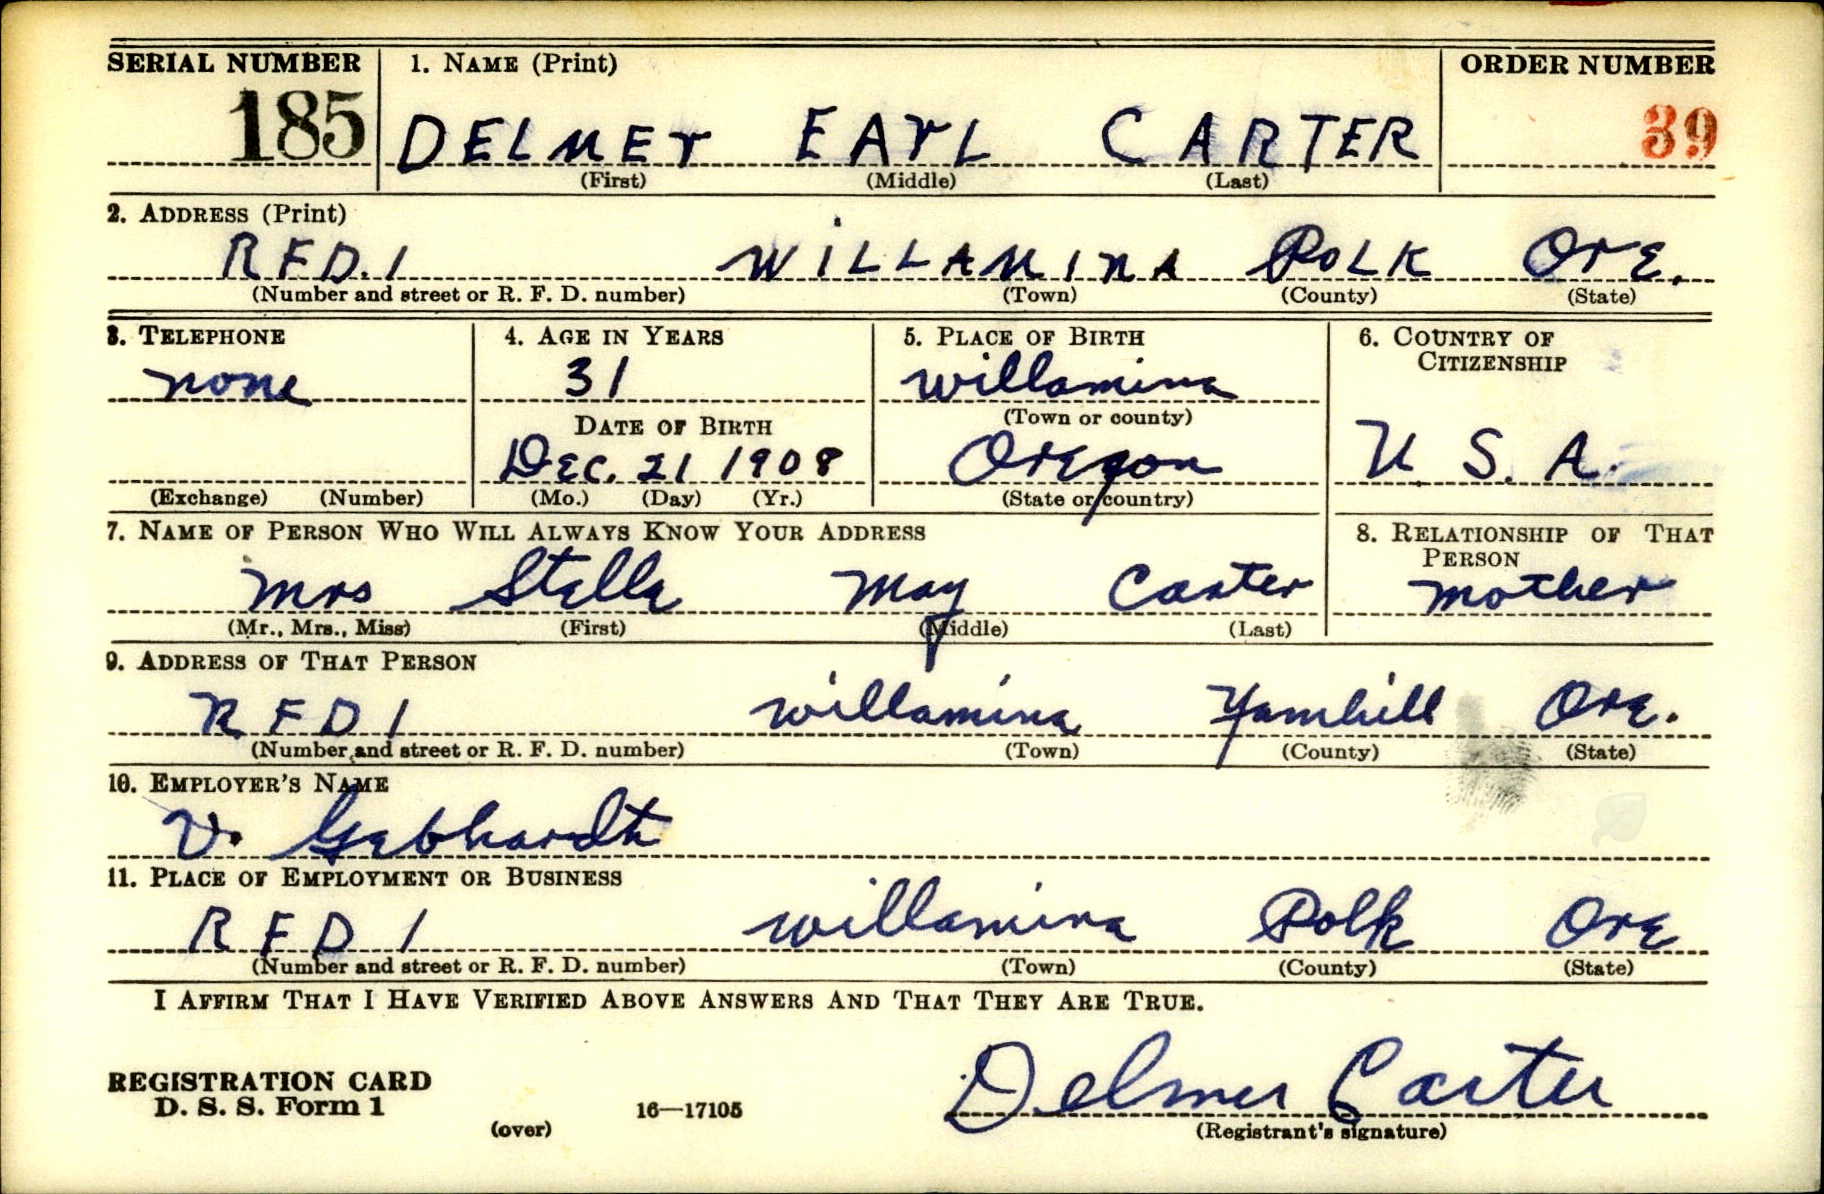 SERIAL NUMBER 1. NAME (Print) ORDER NUMBER
185 DELMER EARL CARTER 39
(First) (Middle) (Last)
2. ADDRESS (Print)
RFD. 1 WILLAMINA POLK ORE.
(Number and street or R. F. D. number) (Town) (County) (State)
3. TELEPHONE 4. AGE IN YEARS 5. PLACE OF BIRTH 6. COUNTRY OF CITIZENSHIP
none 31 Willamina
(Town or county)
DATE OF BIRTH
Dec. 21 1908 Oregon U. S. A.
(Exchange) (Number) (Mo.) (Day) (Yr.) (State or country)
7. NAME OF PERSON WHO WILL ALWAYS KNOW YOUR ADDRESS 8. RELATIONSHIP OF THAT PERSON
Mrs Stella May Carter mother
(Mr., Mrs., Miss) (First) (Middle) (Last)
9. ADDRESS OF THAT PERSON
RFD 1 Willamina Yamhill Ore.
(Number and street or R. F. D. number) (Town) (County) (State)
10. EMPLOYER'S NAME
V. Gebhardt
11. PLACE OF EMPLOYMENT OR BUSINESS
RFD 1 Willamina Polk Ore
(Number and street or R. F. D. number) (Town) (County) (State)
I AFFIRM THAT I HAVE VERIFIED ABOVE ANSWERS AND THAT THEY ARE TRUE.
REGISTRATION CARD
D. S. S. Form 1 16—17105 Delmer Carter
(over) (Registrant's signature)